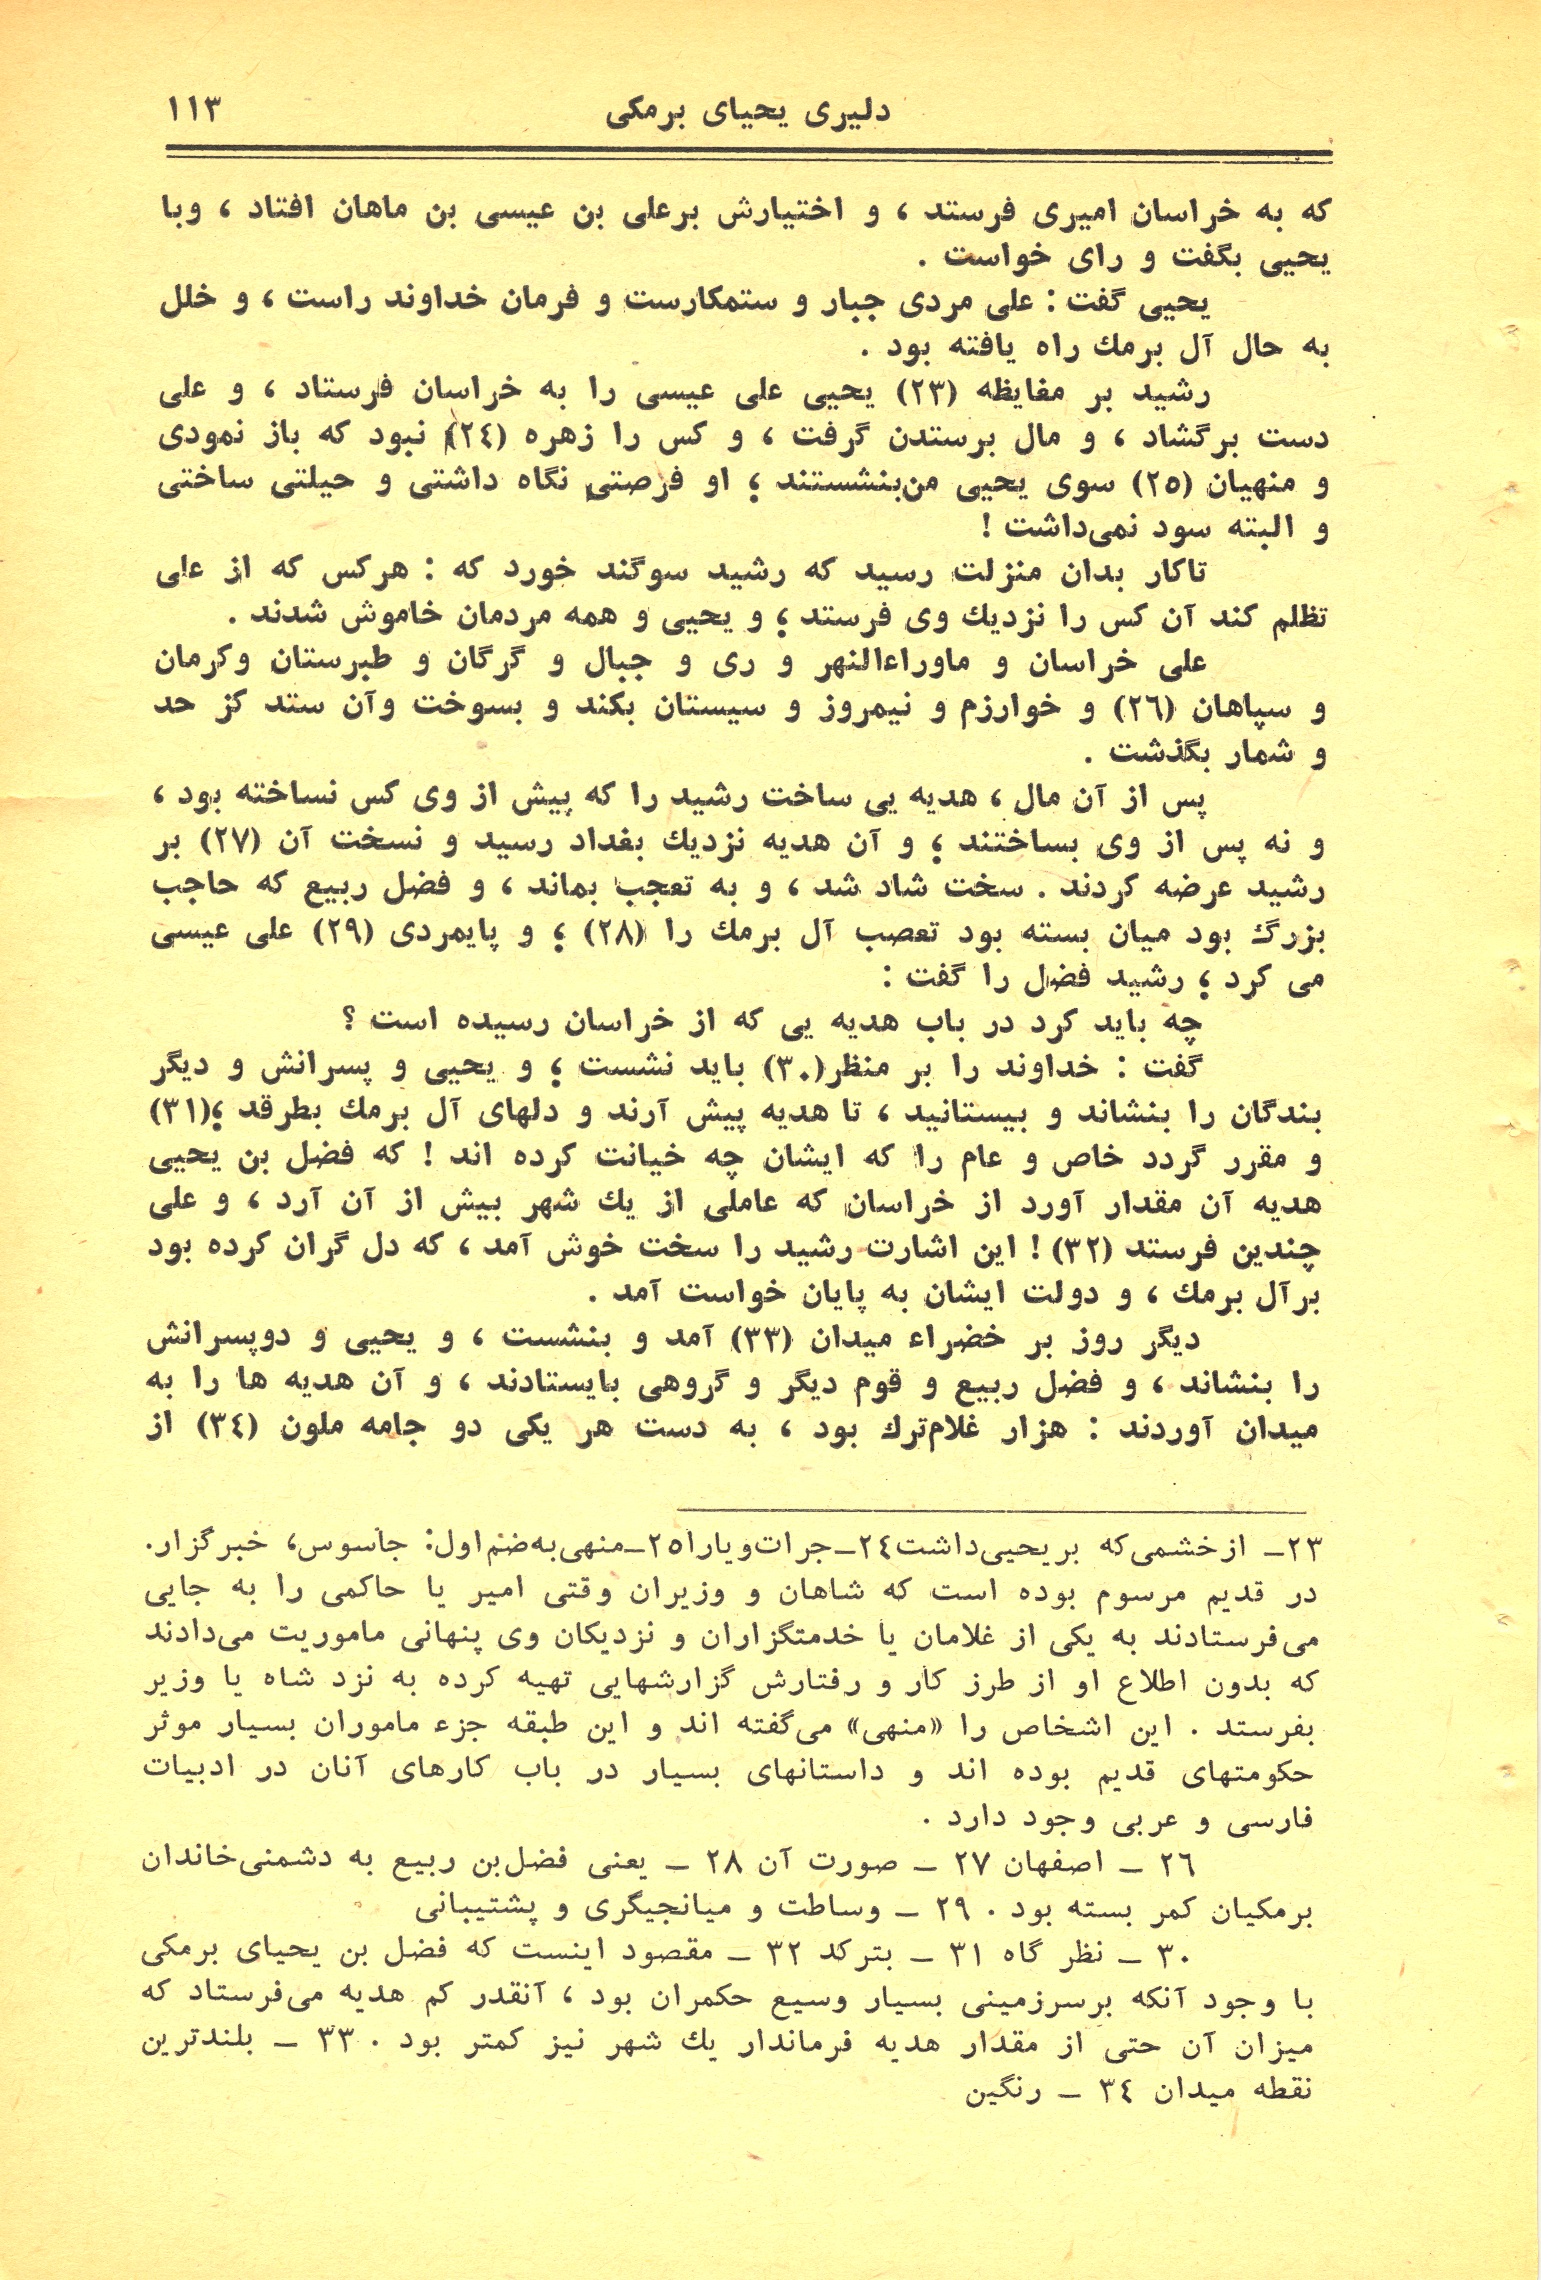 دلیری یحیای برمکی
۱۱۳
که به خراسان امیری فرستد ، و اختیارش برعلی بن عیسی بن ماهان افتاد ، وبا
یحیی بگفت و رای خواست .
یحیی گفت : علی مردی جبار و ستمکارست و فرمان خداوند راست ، و خلل
به حال آل برمك راه یافته بود .
رشید بر مغایظه (۲۳) یحیی علی عیسی را به خراسان فرستاد ، و علی
دست برگشاد ، و مال برستدن گرفت ، و کس را زهره (۲٤) نبود که باز نمودی
و منهیان (۲٥) سوی یحیی من‌بنشستند ؛ او فرصتی نگاه داشتی و حیلتی ساختی
و البته سود نمی‌داشت !
تاکار بدان منزلت رسید که رشید سوگند خورد که : هرکس که از علی
تظلم کند آن کس را نزدیك وی فرستد ؛ و یحیی و همه مردمان خاموش شدند .
علی خراسان و ماوراءالنهر و ری و جبال و گرگان و طبرستان وکرمان
و سپاهان (۲٦) و خوارزم و نیمروز و سیستان بکند و بسوخت وآن ستد کز حد
و شمار بگذشت .
پس از آن مال ، هدیه یی ساخت رشید را که پیش از وی کس نساخته بود ،
و نه پس از وی بساختند ؛ و آن هدیه نزدیك بغداد رسید و نسخت آن (۲۷) بر
رشید عرضه کردند . سخت شاد شد ، و به تعجب بماند ، و فضل ربیع که حاجب
بزرگ بود میان بسته بود تعصب آل برمك را (۲۸) ؛ و پایمردی (۲۹) علی عیسی
می کرد ؛ رشید فضل را گفت :
چه باید کرد در باب هدیه یی که از خراسان رسیده است ؟
گفت : خداوند را بر منظر(۳۰) باید نشست ؛ و یحیی و پسرانش و دیگر
بندگان را بنشاند و بیستانید ، تا هدیه پیش آرند و دلهای آل برمك بطرقد ؛(۳۱)
و مقرر گردد خاص و عام را که ایشان چه خیانت کرده اند ! که فضل بن یحیی
هدیه آن مقدار آورد از خراسان که عاملی از یك شهر بیش از آن آرد ، و علی
چندین فرستد (۳۲) ! این اشارت رشید را سخت خوش آمد ، که دل گران کرده بود
برآل برمك ، و دولت ایشان به پایان خواست آمد .
دیگر روز بر خضراء میدان (۳۳) آمد و بنشست ، و یحیی و دوپسرانش
را بنشاند ، و فضل ربیع و قوم دیگر و گروهی بایستادند ، و آن هدیه ها را به
میدان آوردند : هزار غلام‌ترك بود ، به دست هر یکی دو جامه ملون (۳٤) از
۲۳ـ ازخشمی‌که بریحیی‌داشت۲٤ـجرات‌ویارا۲٥ـمنهی‌به‌ضم‌اول: جاسوس، خبرگزار.
در قدیم مرسوم بوده است که شاهان و وزیران وقتی امیر یا حاکمی را به جایی
می‌فرستادند به یکی از غلامان یا خدمتگزاران و نزدیکان وی پنهانی ماموریت می‌دادند
که بدون اطلاع او از طرز کار و رفتارش گزارشهایی تهیه کرده به نزد شاه یا وزیر
بفرستد . این اشخاص را «منهی» می‌گفته اند و این طبقه جزء ماموران بسیار موثر
حکومتهای قدیم بوده اند و داستانهای بسیار در باب کارهای آنان در ادبیات
فارسی و عربی وجود دارد .
۲٦ ـ اصفهان ۲۷ ـ صورت آن ۲۸ ـ یعنی فضل‌بن ربیع به دشمنی‌خاندان
برمکیان کمر بسته بود . ۲۹ ـ وساطت و میانجیگری و پشتیبانی
۳۰ ـ نظر گاه ۳۱ ـ بترکد ۳۲ ـ مقصود اینست که فضل بن یحیای برمکی
با وجود آنکه برسرزمینی بسیار وسیع حکمران بود ، آنقدر کم هدیه می‌فرستاد که
میزان آن حتی از مقدار هدیه فرماندار یك شهر نیز کمتر بود . ۳۳ ـ بلندترین
نقطه میدان ۳٤ ـ رنگین